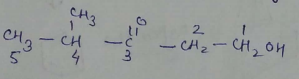 CH₃ O
CH₃ – CH – C – CH₂ – CH₂OH
5 4 3 2 1